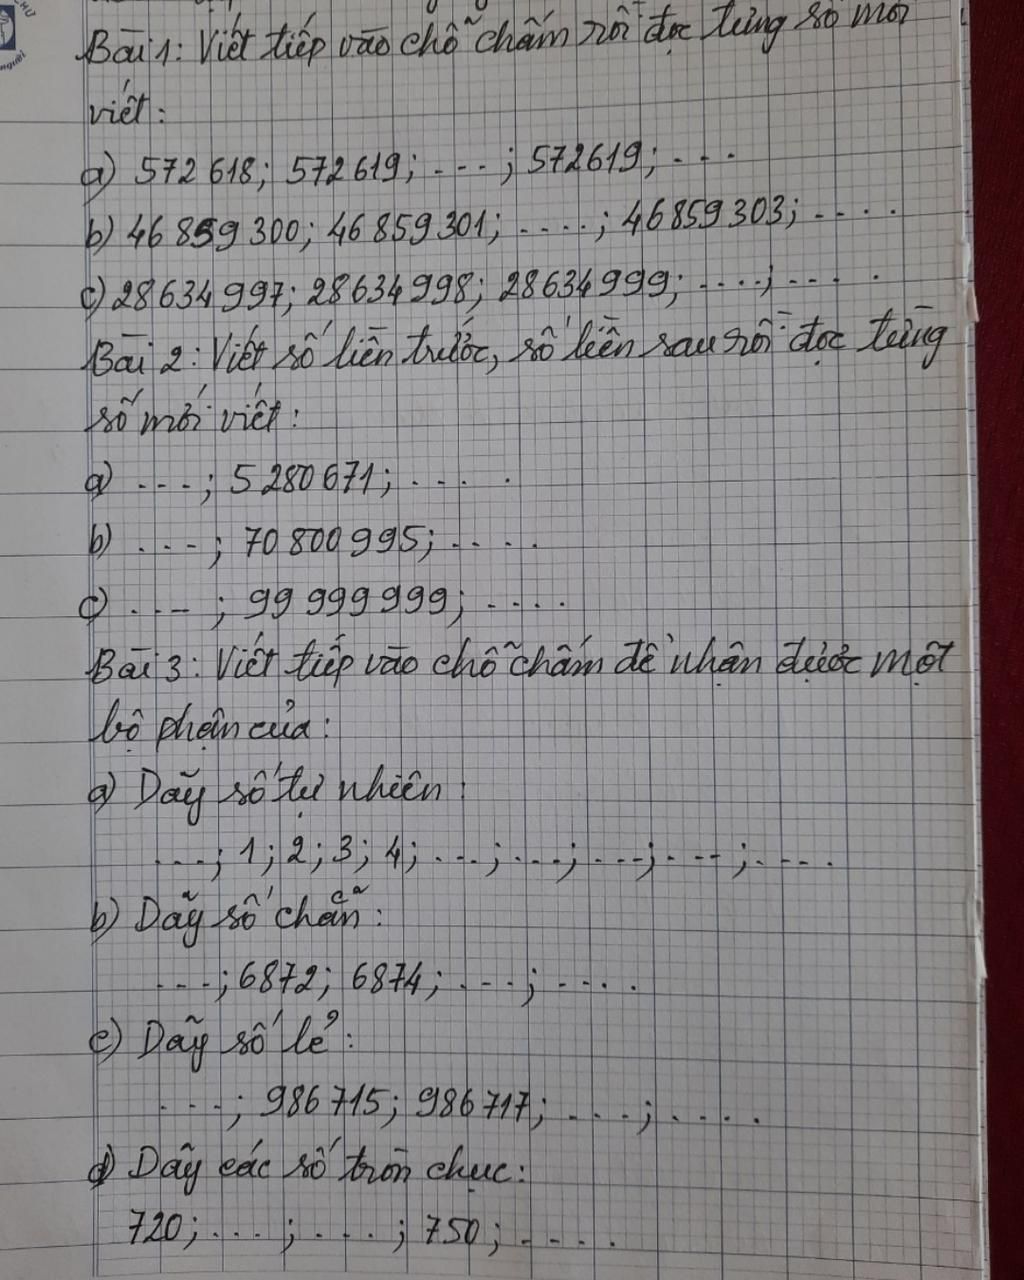 Bài 1: Viết tiếp vào chỗ chấm rồi đọc từng số mới
viết:
a) 572 618; 572 619; ...; 572619; ...
b) 46 859 300; 46 859 301; ....; 46 859 303; ....
c) 28634 997; 28634 998; 28634 999; ....; ....
Bài 2: Viết số liền trước, số liền sau rồi đọc từng
số mới viết:
a) ...; 5 280 671; ....
b) ...; 70 800 995; ....
c) ...; 99 999 999; ....
Bài 3: Viết tiếp vào chỗ chấm để nhận được một
bộ phận của:
a) Dãy số tự nhiên:
...; 1; 2; 3; 4; ...; ...; ...; ...; ....
b) Dãy số chẵn:
...; 6872; 6874; ...; ....
c) Dãy số lẻ:
...; 986 715; 986 717; ...; ....
d) Dãy các số tròn chục:
720; ...; ...; 750; ....